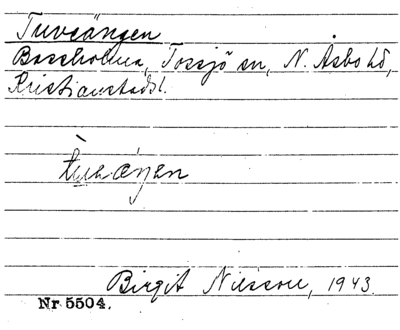 Tuveängen
Bosshåma, Tossjö sn, N. Åsbo hd,
Kristianstads l.
tuvaŋen
Birgit Nilsson, 1943
Nr 5504.